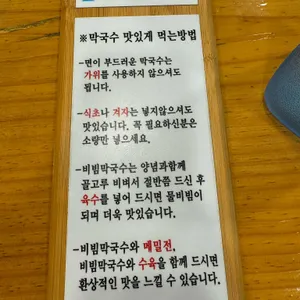 ※막국수 맛있게 먹는방법
-면이 부드러운 막국수는
가위를 사용하지 않으셔도
됩니다.
-식초나 겨자는 넣지않으셔도
맛있습니다. 꼭 필요하신분은
소량만 넣으세요.
-비빔막국수는 양념과함께
골고루 비벼서 절반쯤 드신 후
육수를 넣어 드시면 물비빔이
되며 더욱 맛있습니다.
-비빔막국수와 메밀전,
비빔막국수와 수육을 함께 드시면
환상적인 맛을 느낄 수 있습니다.